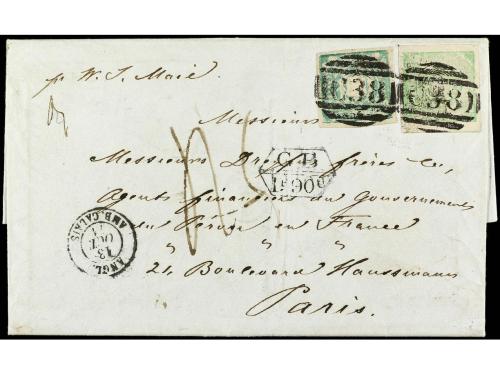 pr W. I. Mail.
C38 C38
Messieurs
Messieurs Dreyfus frères &c,
G B
1F 90c
Agents financiers du Gouvernement
du Pérou en France
" " "
21, Boulevard Haussmann
Paris.
ANGL. AMB. CALAIS
13
OCT.